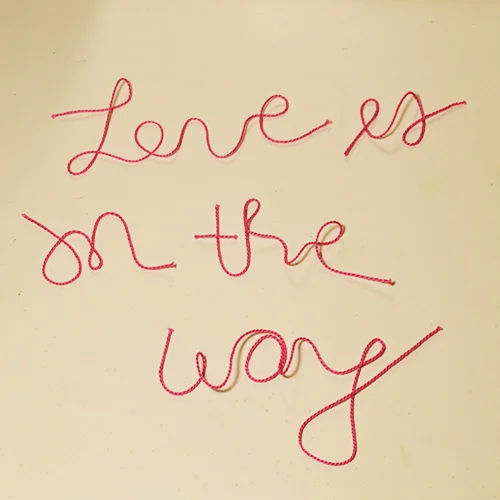 Love is
on the
way